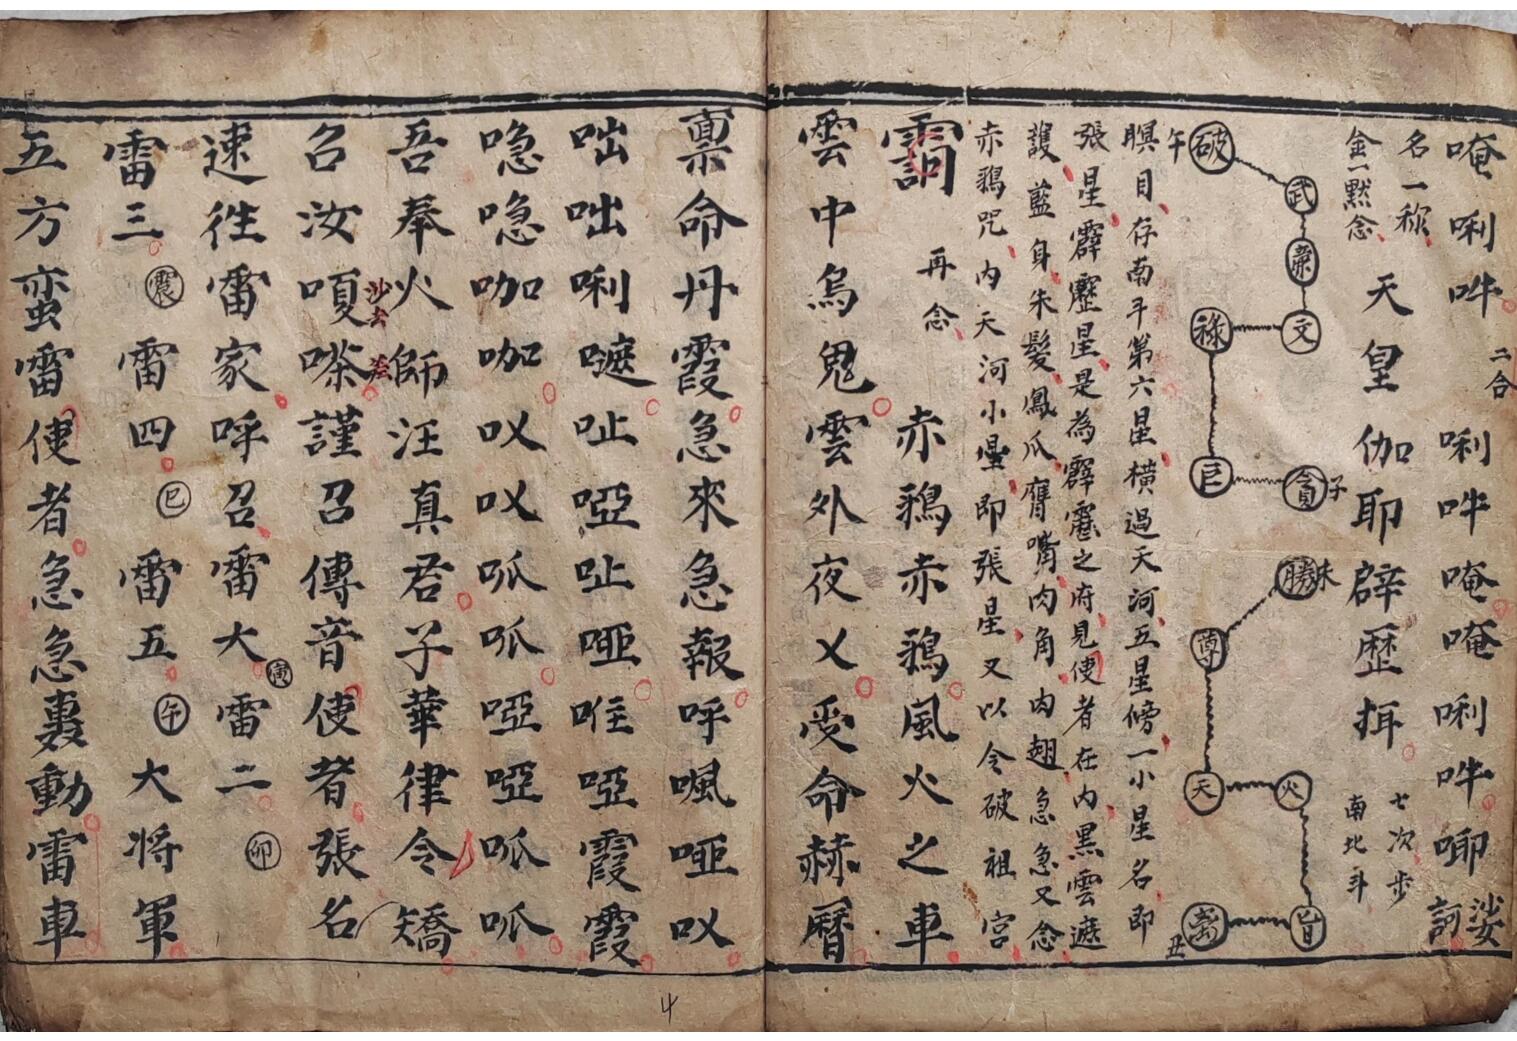 唵唎吽二合唎吽唵唵唎吽唧娑訶
名一称
金一默念
天皇伽耶辟歷揖
七次步
南北斗
午破
武
粛
文
祿
巨
貪子
勝未
尊
天
火
丑
瞑目存南斗第六星橫過天河五星傍一小星名即
張星霹靂星是為霹靂之府見使者在内黑雲遮
護藍身朱髮鳳爪鷹嘴肉角肉翅急急又念
赤鴉咒内天河小星即張星又以令破祖宮
再念
赤鴉赤鴉風火之車
雲中烏鬼雲外夜乂受命赫曆
禀命丹霞急來急報呼𠺌啞㕥
咄咄唎嗻吡啞吡啞唯啞霞霞
㗯㗯咖咖㕥㕥呱呱啞啞呱呱
吾奉火師汪真君子華律令矯
召汝嗄嗏謹召傳音使者張名
沙去
速徃雷家呼召雷大寅雷二卯
雷三震雷四巳雷五午大将軍
五方蛮雷使者急急轟動雷車
4